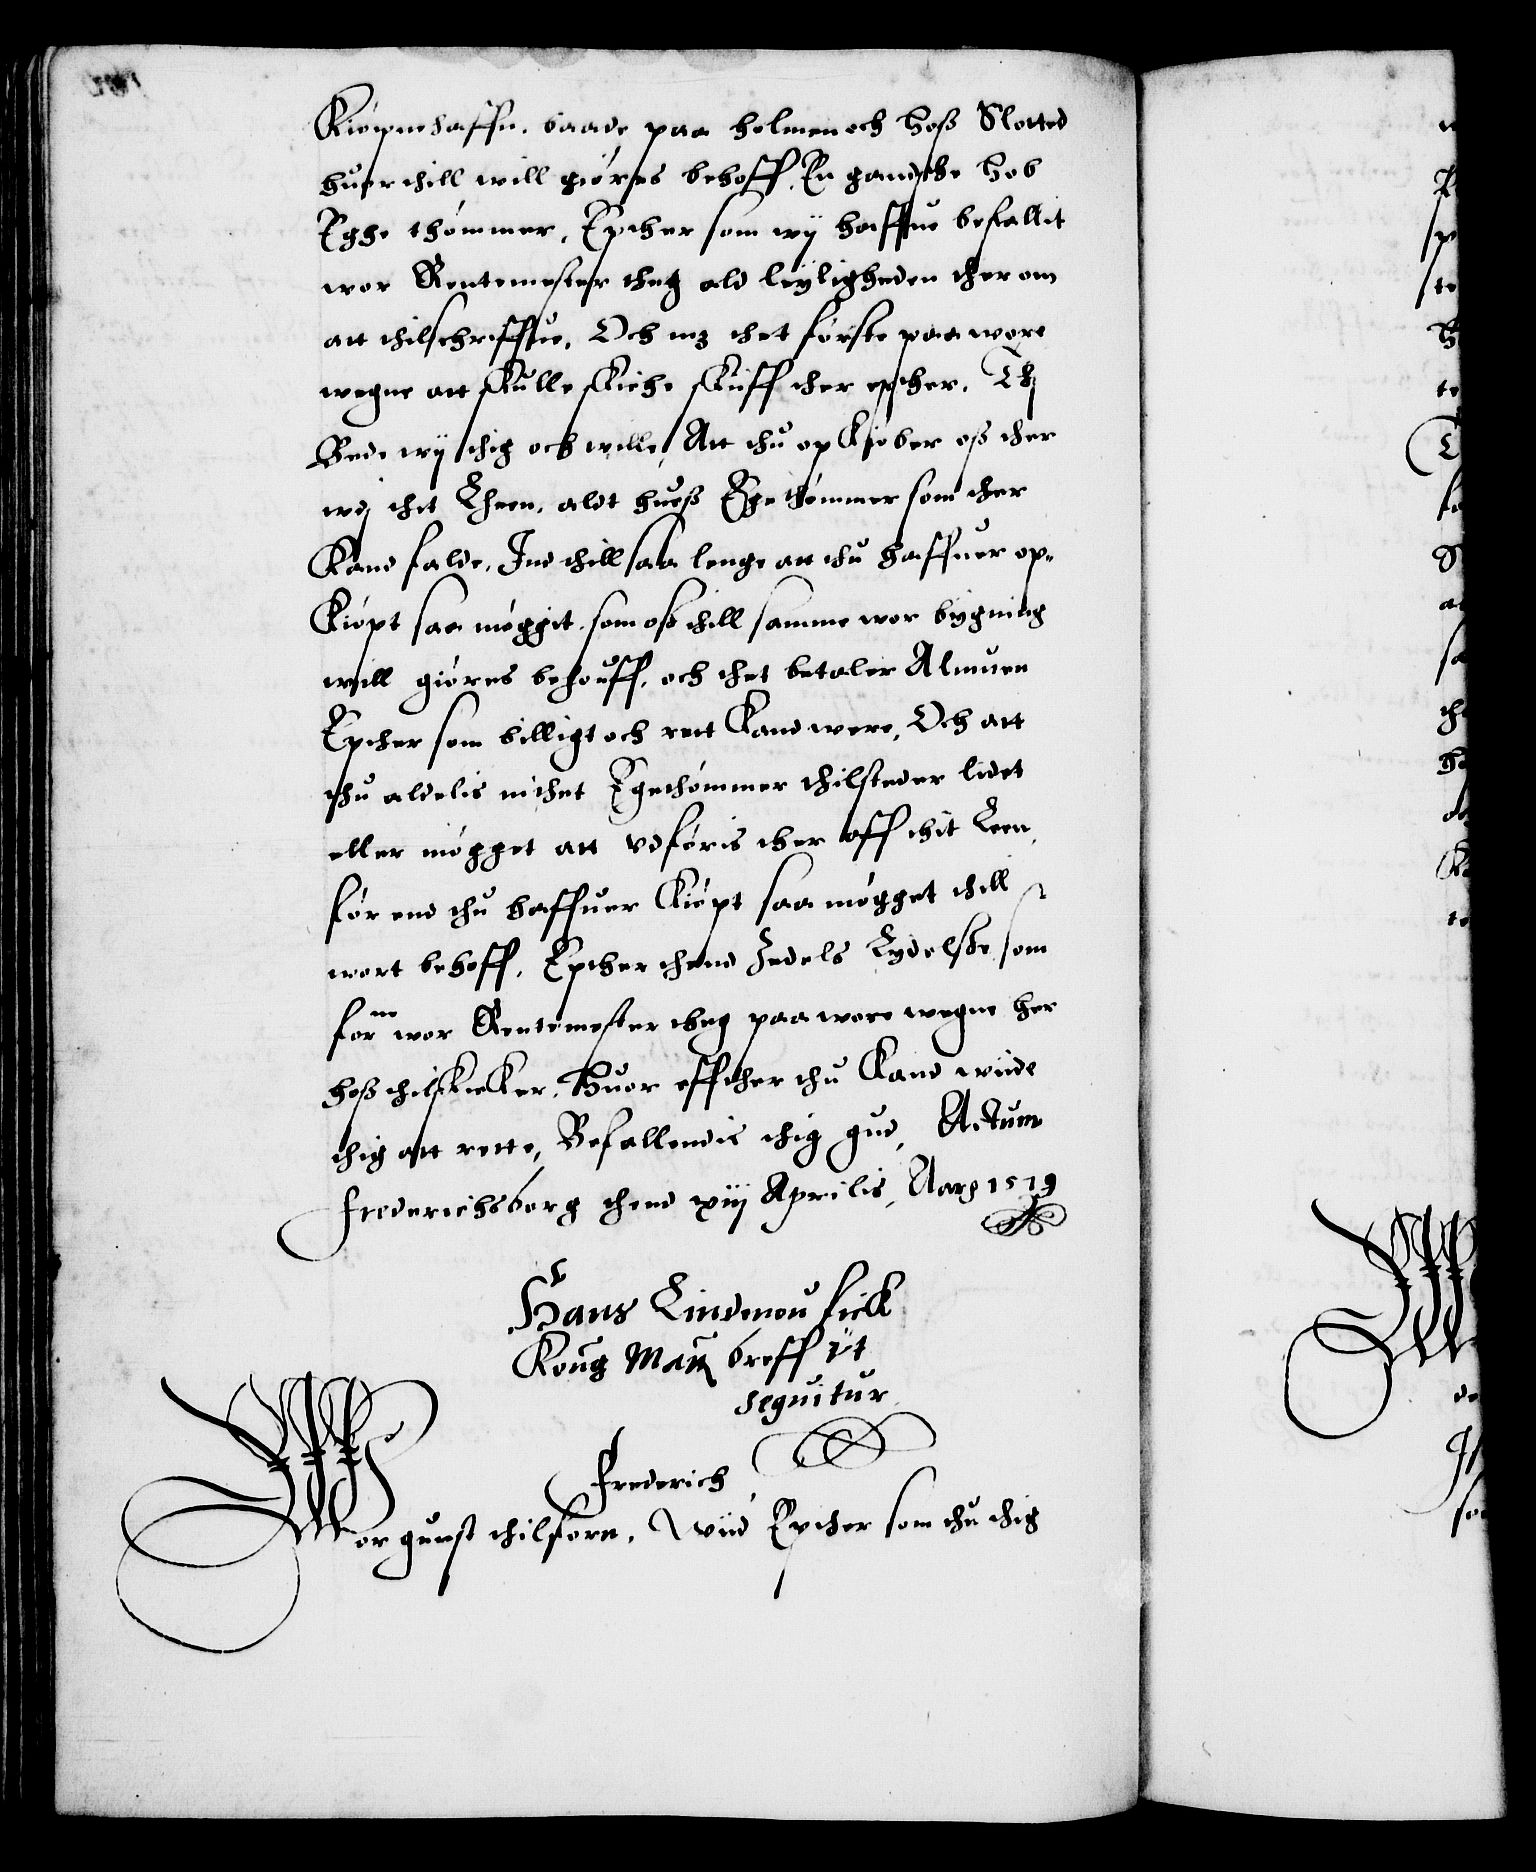 Kiøpnehaffn, baade paa holmen och hoß Slotted
huor thill will giøres behoff, En gandtzke hob
Eghe thømmer, Epther som wij haffue befallit
wor Rentemester theg ald leyligheden ther om
att thilschriffue, Och mz thet første paa wore
wegne att skulle skicke skuff ther epther, Thj
Bede wij thig och wille, Att thu op kiøber oß ther
wdj thit Lheen, aldt hueß Ege thømmer som ther
kand falde, Ind thill saa lenge att thu haffuer op-
kiøpt saa møggit som oß thill samme wor bygning
will giøres behouff, och thet betaler Almuen
Epther som billigt och rett kand were, Och att
thu aldelis inthet Egethømmer thilsteder lidet
eller møgget att vdføris ther aff thit Leen,
før end thu haffuer kiøpt saa møgget thill
wort behoff, Epther thend Zedels Lydelße som
forne wor Rentemester theg paa wore wegne her
hoß thilskicker, Huor effther thu kand wiide
thig att rette, Befallendis thig gud, Actum
Frederichsborg thend xiij Aprilis, Aarß 1579
Hans Lindenou fick
Kong Matz breff vt
sequitur
Frederich
Wor gunst thilforn, Wiid Epther som thu thig